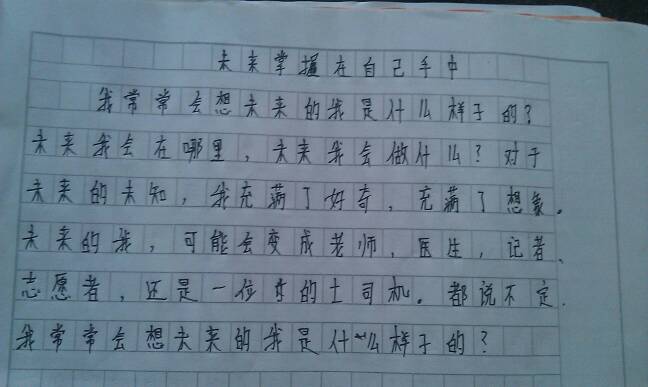 未来掌握在自己手中
我常常会想未来的我是什么样子的？
未来我会在哪里，未来我会做什么？对于
未来的未知，我充满了好奇，充满了想象。
未来的我，可能会变成老师，医生，记者、
志愿者，还是一位的土司机。都说不定.
我常常会想未来的我是什么样子的？